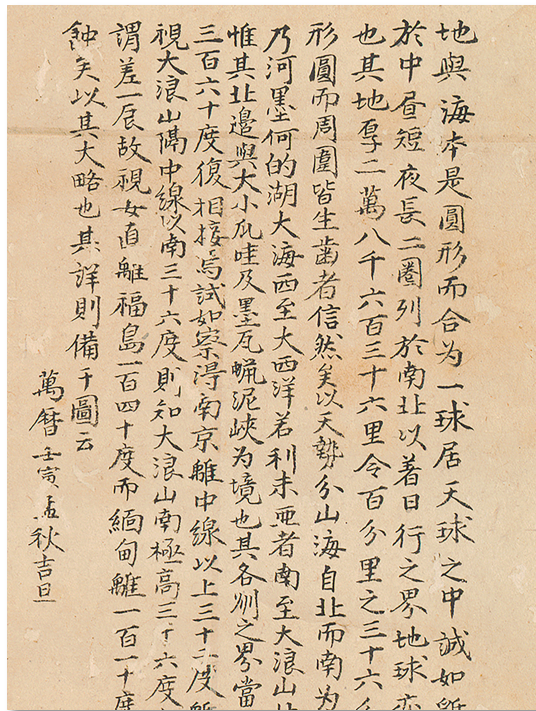 地與海本是圓形而合为一球居天球之中誠如
於中晝短夜長二圈列於南北以着日行之界地球亦
也其地厚二萬八千六百三十六里令百分里之三十六分
形圓而周圍皆生齒者信然矣以天勢分山海自北而南为
乃河墨何的湖大海西至大西洋若利未亜者南至大浪山北
惟其北邊與大小爪哇及墨瓦蝋泥峽为境也其各州之界當
三百六十度復相接焉試如察淂南京離中線以上三十二度
視大浪山隔中線以南三十六度則知大浪山南極高三十六度
謂差一辰故視女直離福島一百四十度而緬甸離一百一十度
蝕矣以其大略也其詳則備于圖云
萬曆壬寅孟秋吉旦